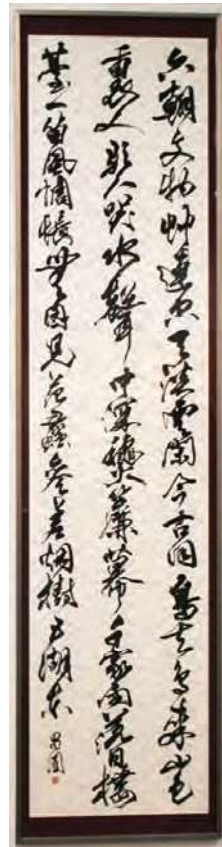 六朝文物艸連空天淡雲閑今古同鳥去鳥來山色
裏人歌人哭水聲中深秋簾幕千家雨落日樓
臺一笛風惆悵無因見范蠡參差烟樹五湖東